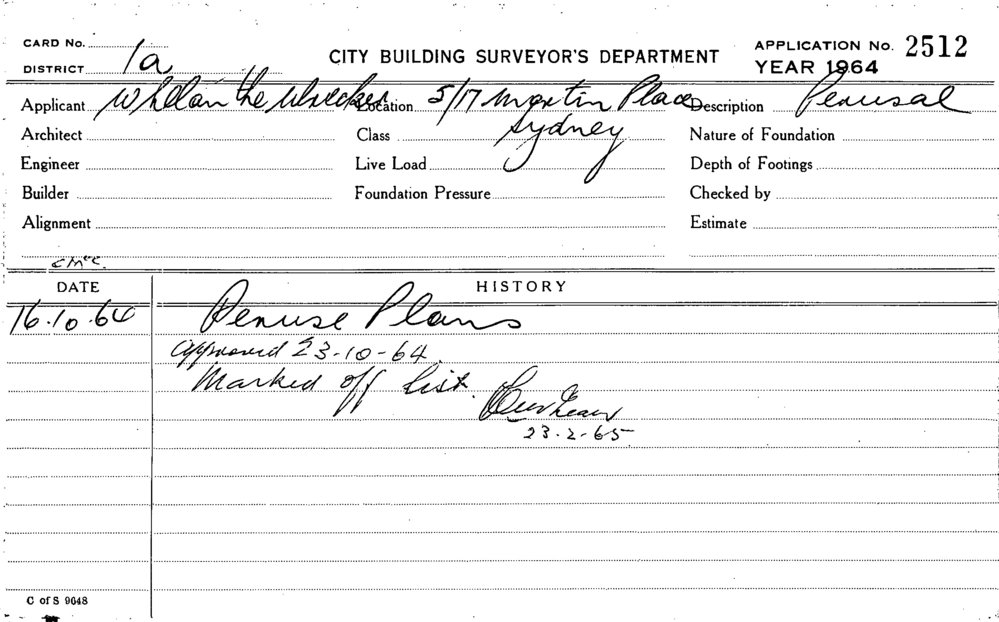 CARD No.
CITY BUILDING SURVEYOR'S DEPARTMENT
APPLICATION No. 2512
DISTRICT 1a
YEAR 1964
Applicant Whelan the Wrecker Location 5/17 Martin Place Description Perusal
Sydney
Architect Class Nature of Foundation
Engineer Live Load Depth of Footings
Builder Foundation Pressure Checked by
Alignment Estimate
DATE HISTORY
16.10.64 Peruse Plans
Approved 23-10-64.
Marked off list.
23.2.65
C of S 9648